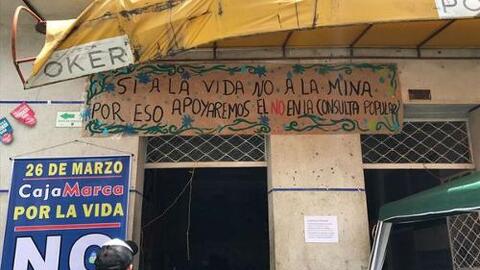 OKER
PO
SI A LA VIDA NO A LA MINA
POR ESO APOYAREMOS EL NO EN LA CONSULTA POPULAR
26 DE MARZO
CajaMarca
POR LA VIDA
NO